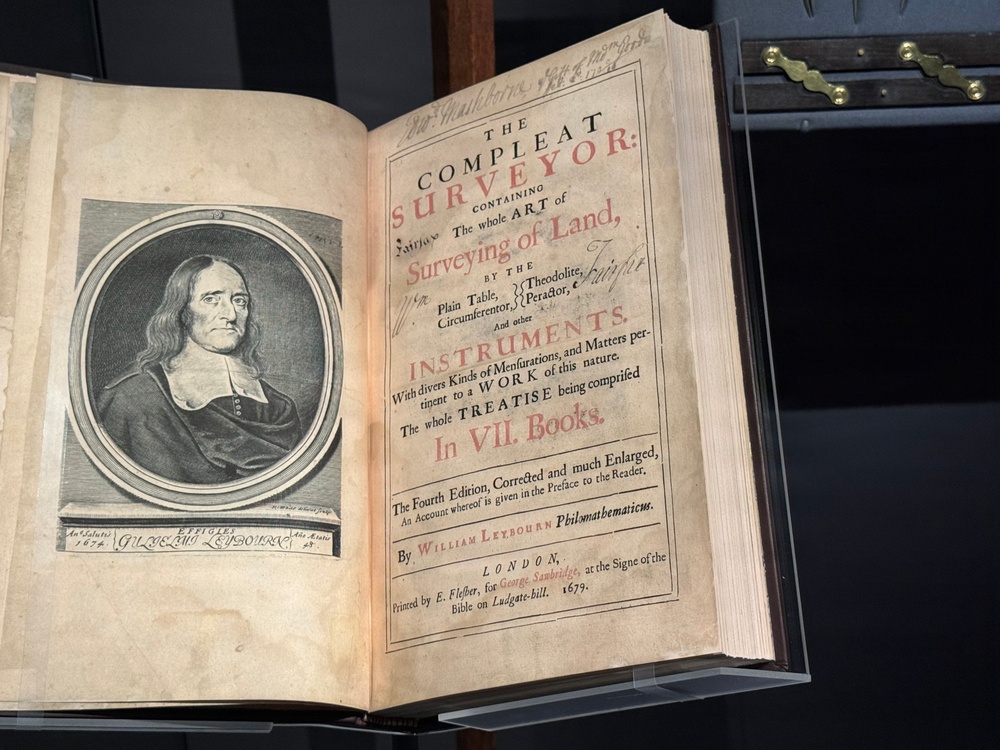 Anº Salutis
1674.
EFFIGIES
GULIELMI LEYBOURN
Año Ætatis
48
Edwd. Mashborne
THE
COMPLEAT
SURVEYOR:
CONTAINING
The whole ART of
Fairfax
Surveying of Land,
BY THE
Wm
Plain Table, Theodolite,
Circumferentor, Peractor,
Fairfax
And other
INSTRUMENTS.
With divers Kinds of Menſurations, and Matters per-
tinent to a WORK of this nature.
The whole TREATISE being compriſed
In VII. Books.
The Fourth Edition, Corrected and much Enlarged,
An Account whereof is given in the Preface to the Reader.
By WILLIAM LEYBOURN Philomathematicus.
LONDON,
Printed by E. Fleſher, for George Sawbridge, at the Signe of the
Bible on Ludgate-hill. 1679.